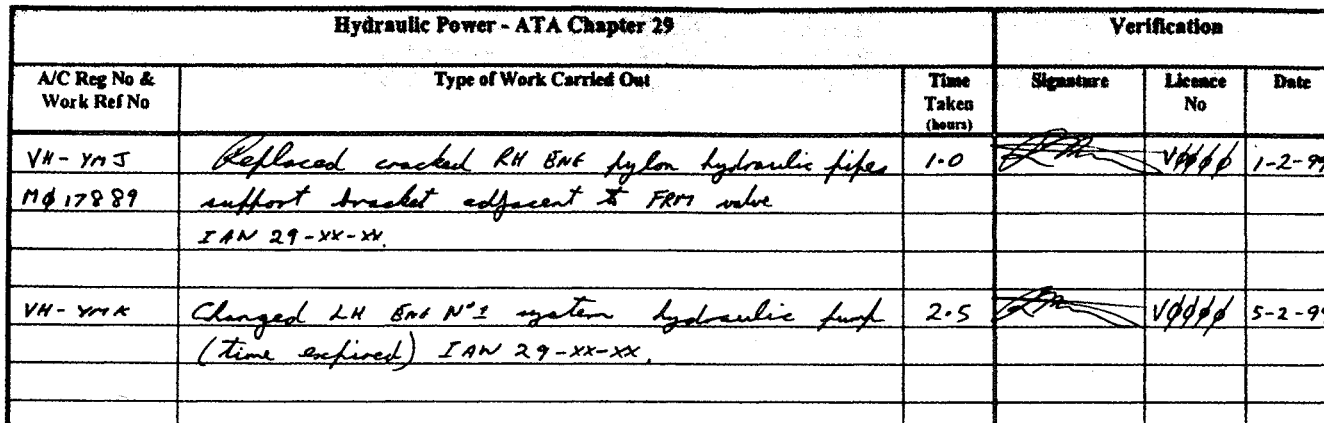 Hydraulic Power - ATA Chapter 29 Verification
A/C Reg No & Work Ref No Type of Work Carried Out Time Taken (hours) Signature Licence No Date
VH-YMJ Replaced cracked RH ENG pylon hydraulic pipes 1.0 VØØØØ 1-2-99
MØ17889 support bracket adjacent to FRM valve
IAW 29-xx-xx.
VH-YMK Changed LH ENG Nº1 system hydraulic pump 2.5 VØØØØ 5-2-99
(time expired) IAW 29-xx-xx.